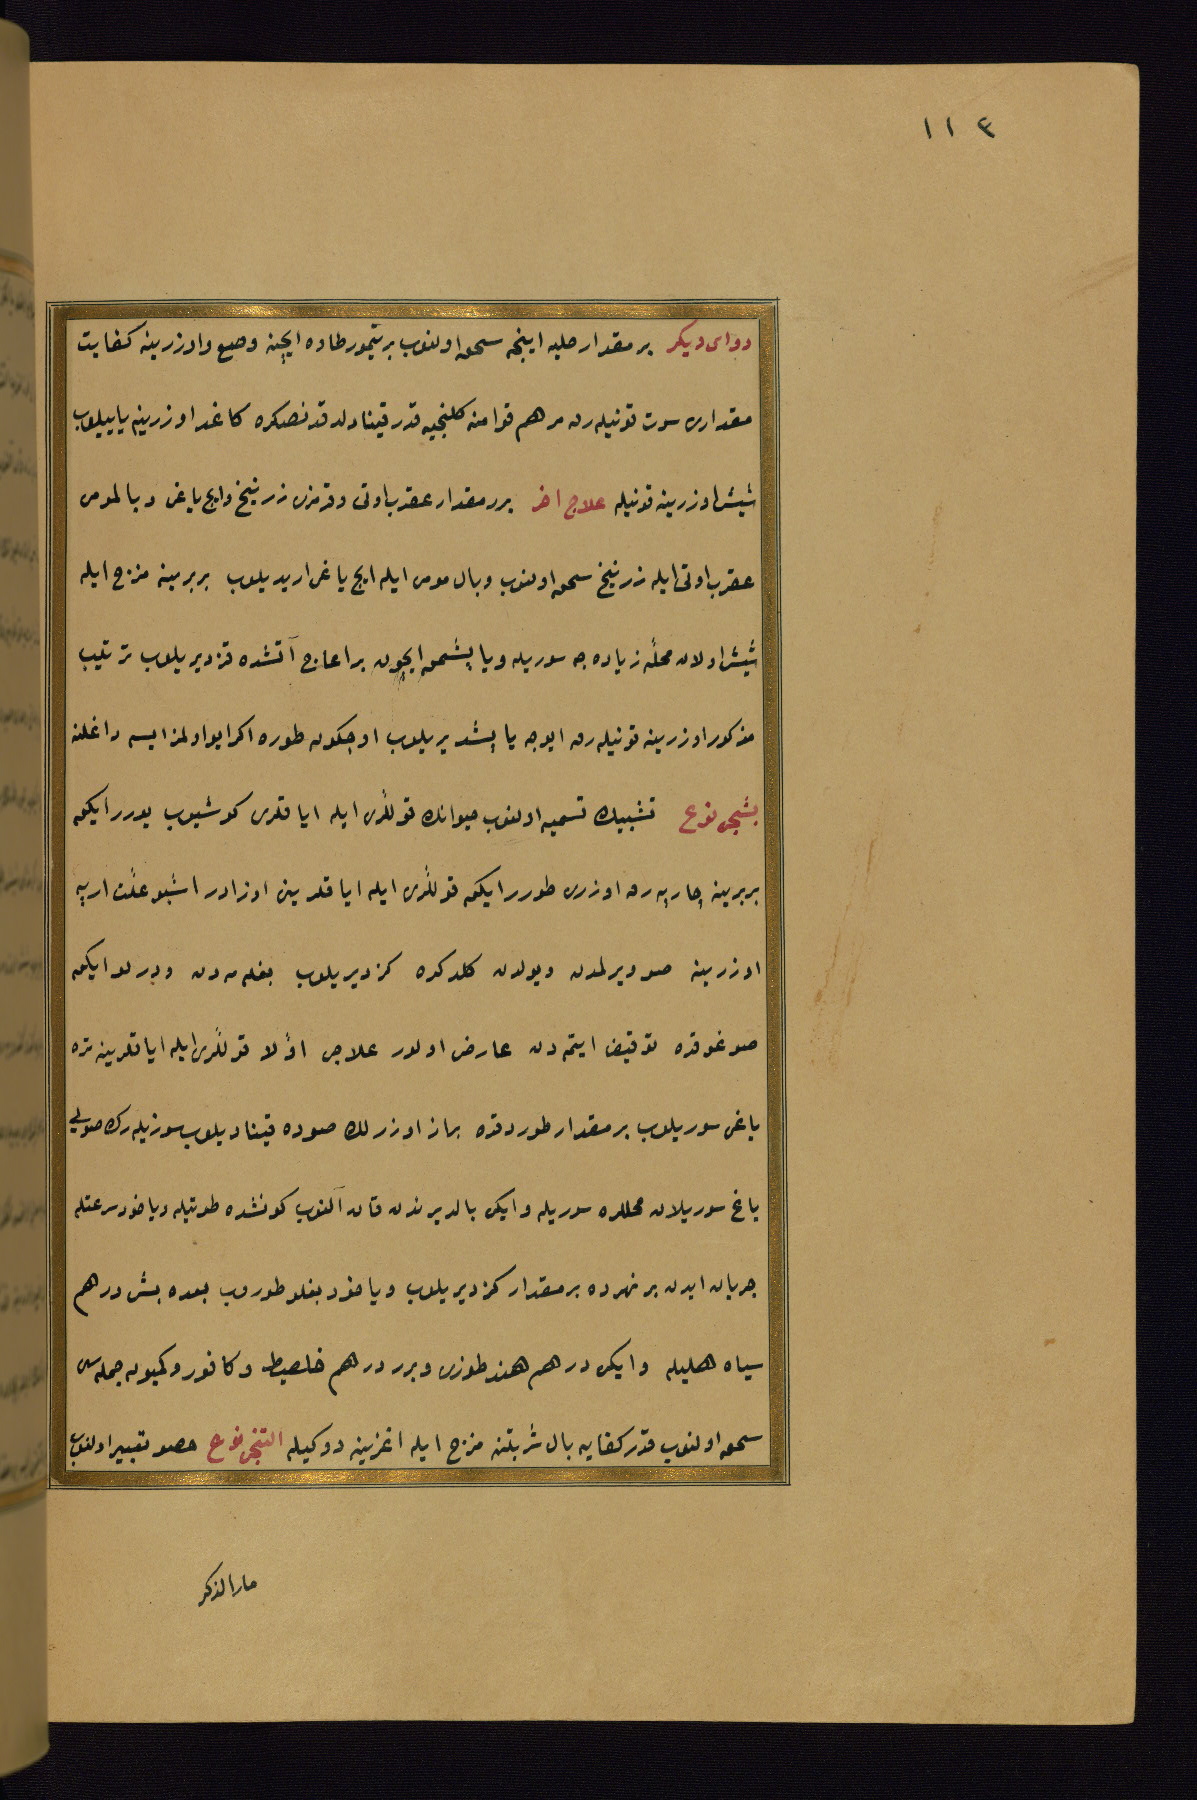 ١١٤
دوای دیكر بر مقدار حلبه اینجه سحق اولنوب بر تیمور طاوه ایچنه وضع واوزرینه كفایت
مقداری سوت قونیله رق مرهم قوامنه كلنجیه قدر قیناد لدقد نصكره كاغد اوزرینه یاییلوب
شیش اوزرینه قونیله علاج اخر برر مقدار عقرب اوتی وقرمزی زرنیخ وایچ یاغی وبالمومی
عقرب اوتی ایله زرنیخ سحق اولنوب وبال مومی ایله ایچ یاغی اریدیلوب بربرینه مزج ایله
شیش اولان محله زیاده جه سوریله ویاپشمق ایچون براغاج آتشده قزدیریلوب ترتیب
مذكور اوزرینه قونیله رق ایوجه یاپشدیریلوب اوچكون طوره اكر ایو اولمز ایسه داغلنه
بشنجی نوع تشبیك تسمیه اولنوب حیوانك قوللری ایله ایاقلری كوشیوب یورر ایكن
بربرینه چارپه رق اوزری طورر ایكن قوللری ایله ایاقلرینی اوزادر اشبو علت ارپه
اوزرینه صو ویرلمدن ویولدن كلدكده كزدیریلوب بغله مدن ودرلو ایكن
صوغوقده توقیف ایتمه دن عارض اولور علاجی اولا قوللری ایله ایاقلرینه تره
یاغی سوریلوب بر مقدار طوردقده براز اوزرلك صوده قینادیلوب سوزیله رك صویی
یاغ سوریلان محللره سوریله وایكی بالدیرندن قان آلنوب كونشده طوتیله ویاخود سرعتله
جریان ایدن بر نهرده بر مقدار كزدیریلوب ویاخود بغلو طوروب بعده بش درهم
سیاه هلیله وایكی درهم هند طوزی وبرر درهم خلصیط وكافور وكمیون جمله سی
سحق اولنوب قدر كفایه بال شربتنه مزج ایله اغزینه دوكیله التنجی نوع حصو تعبیر اولنوب
مارالذكر